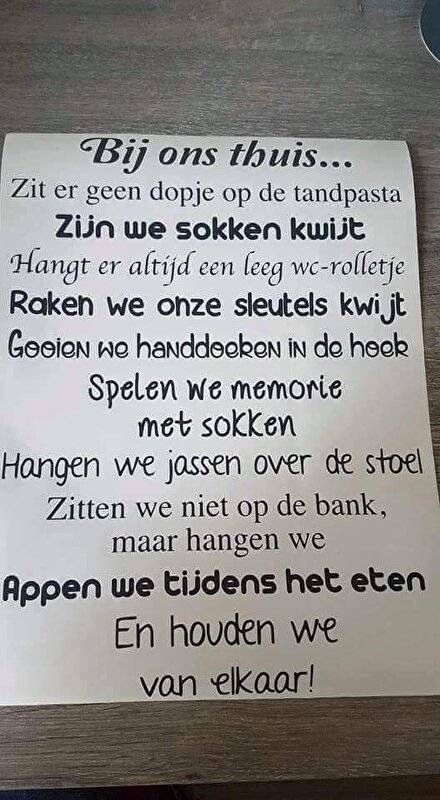 Bij ons thuis...
Zit er geen dopje op de tandpasta
Zijn we sokken kwijt
Hangt er altijd een leeg wc-rolletje
Raken we onze sleutels kwijt
Gooien we handdoeken in de hoek
Spelen we memorie
met sokken
Hangen we jassen over de stoel
Zitten we niet op de bank,
maar hangen we
Appen we tijdens het eten
En houden we
van elkaar!